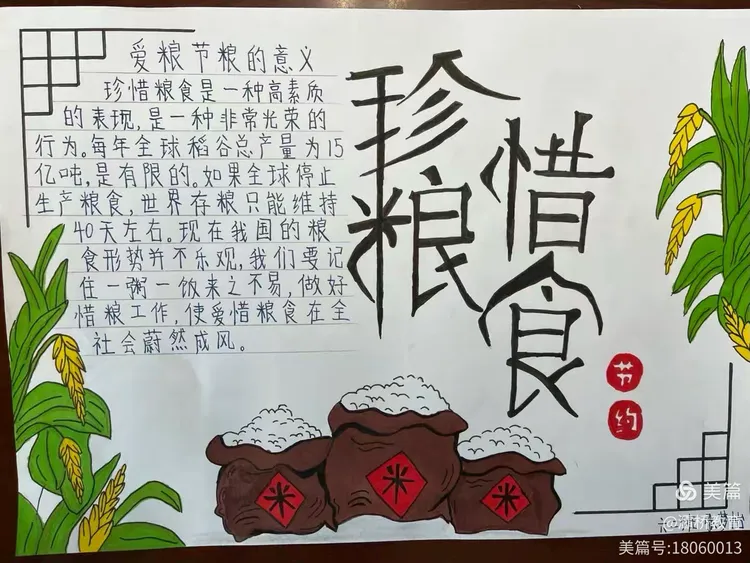 爱粮节粮的意义
珍惜粮食是一种高素质
的表现,是一种非常光荣的
行为。每年全球稻谷总产量为15
亿吨,是有限的。如果全球停止
生产粮食,世界存粮只能维持
40天左右。现在我国的粮
食形势并不乐观,我们要记
住一粥一饭来之不易,做好
惜粮工作,使爱惜粮食在全
社会蔚然成风。
珍惜
粮食
节约
米
米
米
美篇
美篇号:18060013